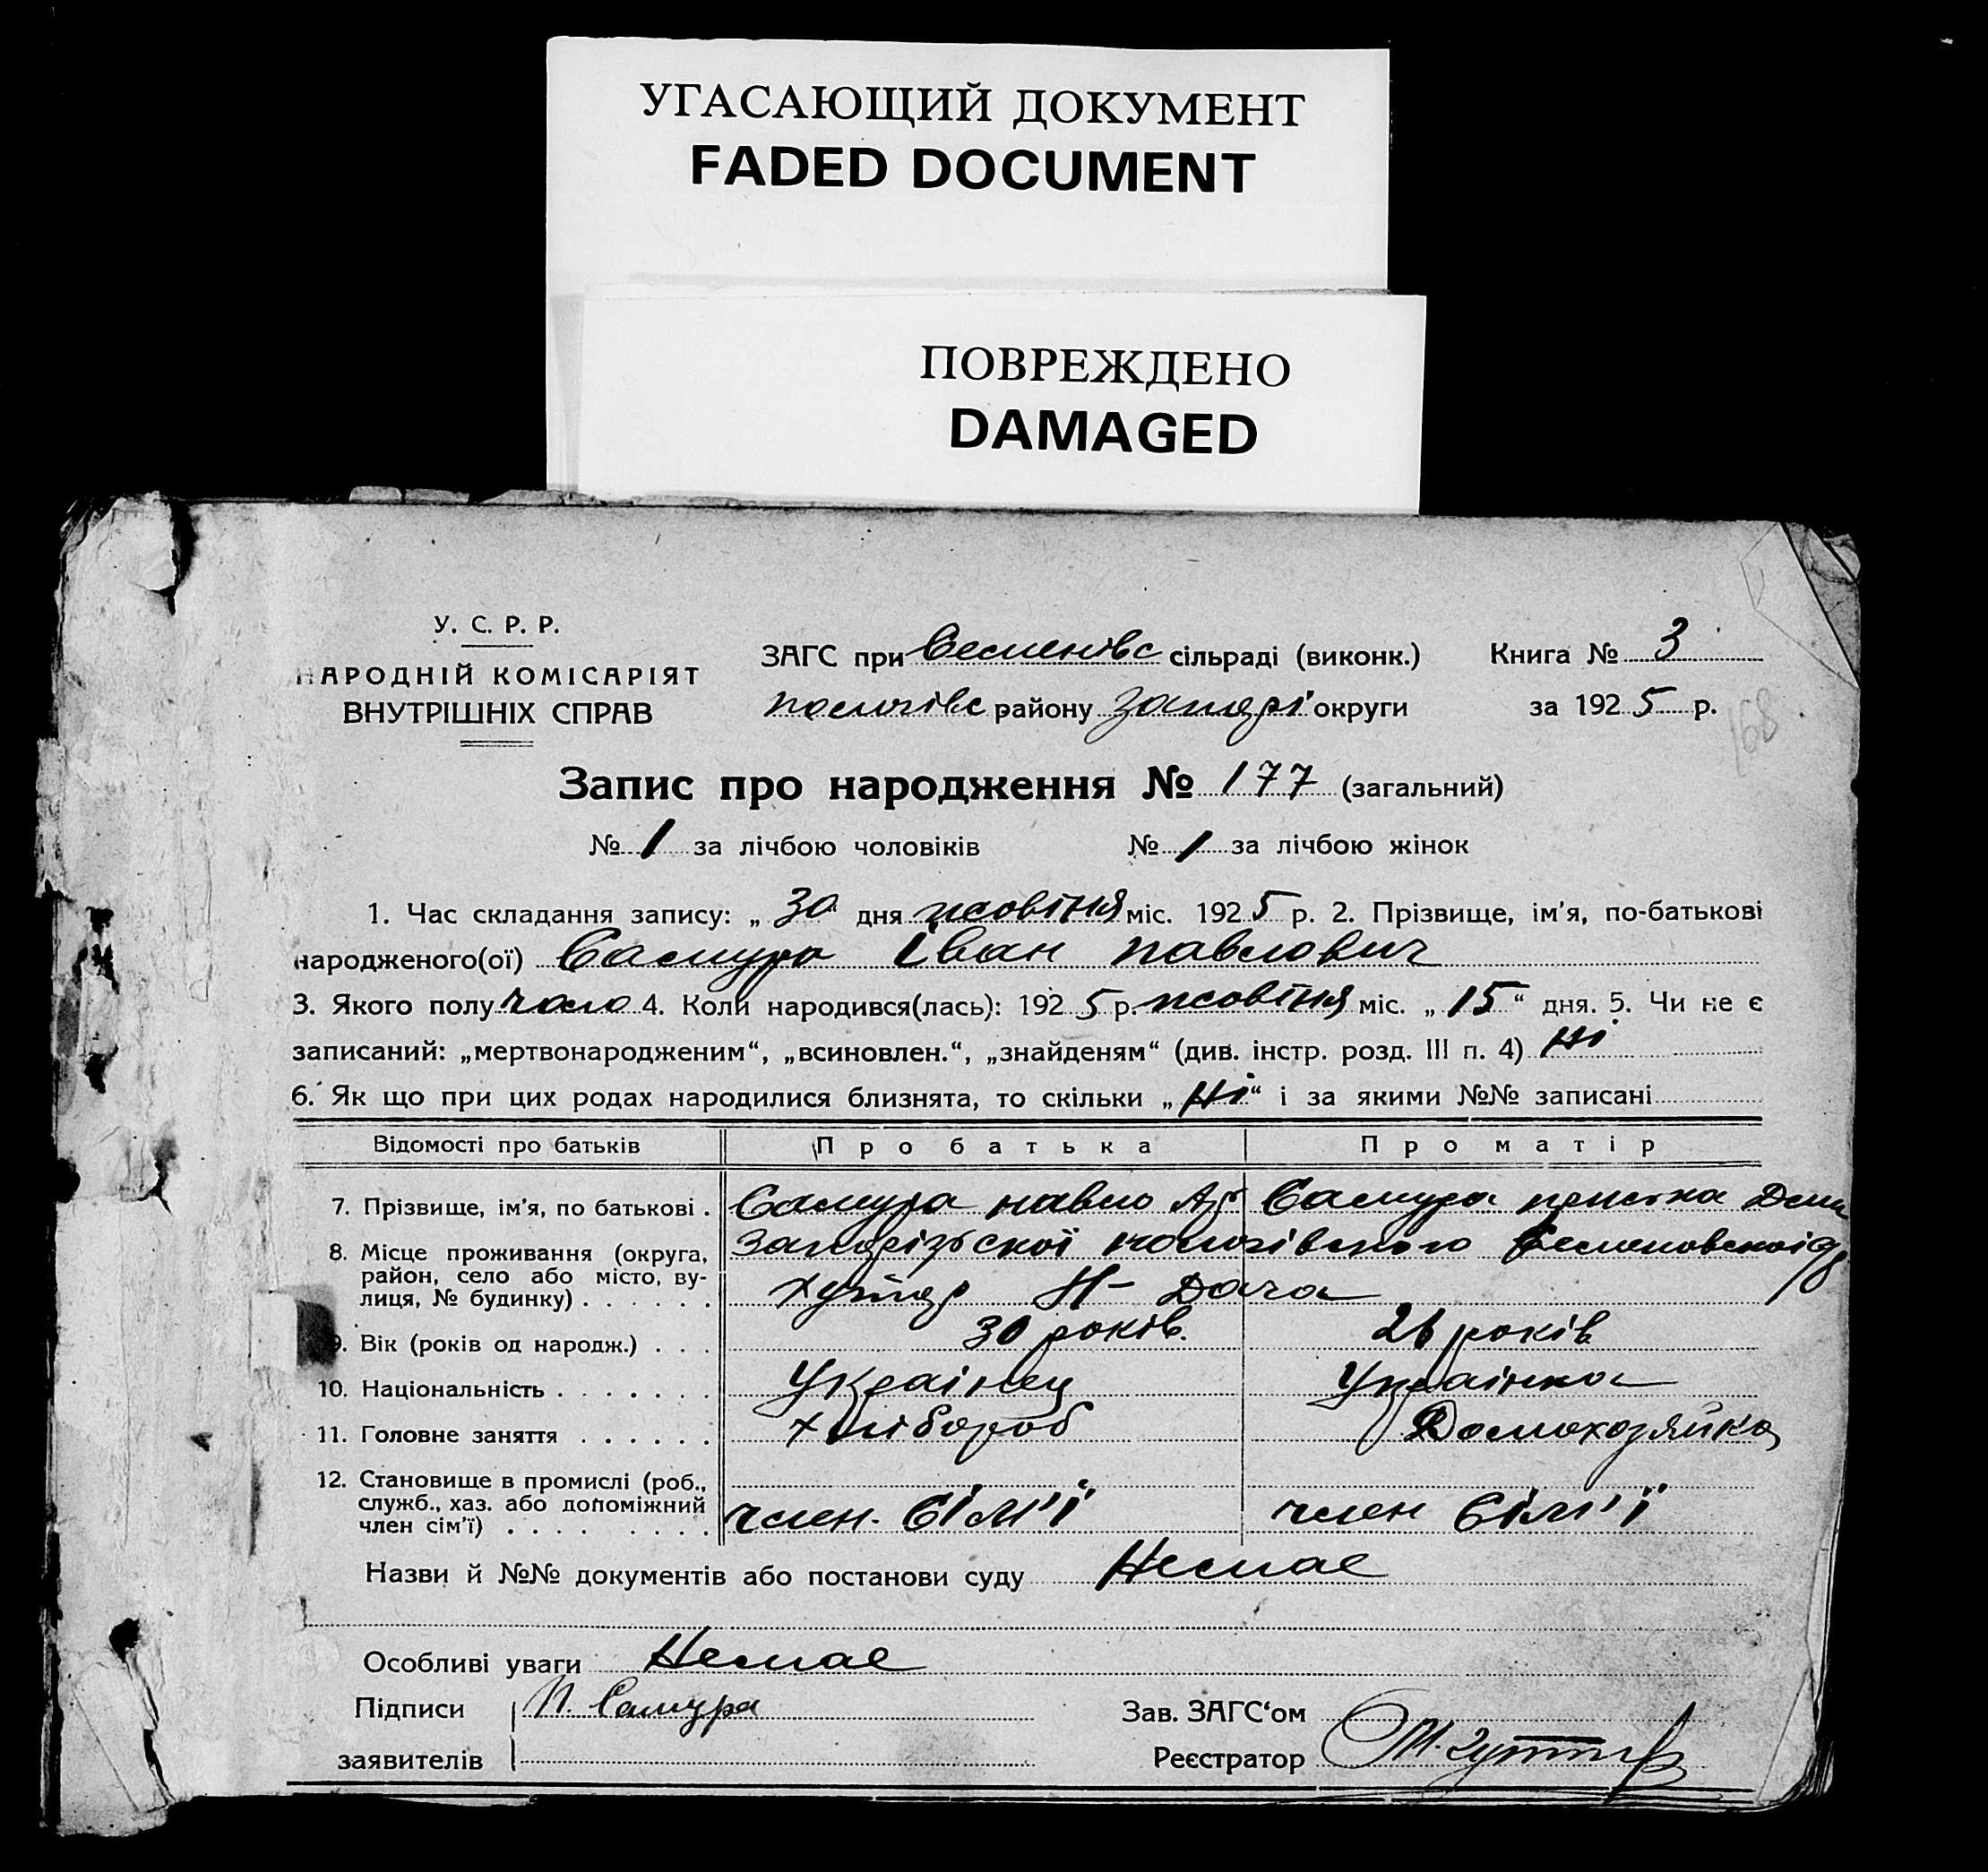 УГАСАЮЩИЙ ДОКУМЕНТ
FADED DOCUMENT
ПОВРЕЖДЕНО
DAMAGED
У. С. Р. Р.
НАРОДНІЙ КОМІСАРІЯТ
ВНУТРІШНІХ СПРАВ
ЗАГС при сільраді (виконк.)
району Запорі округи
Книга № 3
за 1925 р.
168
Запис про народження № 177 (загальний)
№ 1 за лічбою чоловіків № 1 за лічбою жінок
1. Час складання запису: „ 30 дня жовтня міс. 1925 р. 2. Прізвище, ім'я, по-батькові
народженого(ої) Самура Іван Павлович
3. Якого полу чоло 4. Коли народився(лась): 1925 р. жовтня міс. „ 15 “ дня. 5. Чи не є
записаний: „мертвонародженим“, „всиновлен.“, „знайденям“ (див. інстр. розд. III п. 4) Ні
6. Як що при цих родах народилися близнята, то скільки „ Ні “ і за якими №№ записані
Відомості про батьків Про батька Про матір
7. Прізвище, ім'я, по батькові . Самура Павло Самура
8. Місце проживання (округа, район, село або місто, вулиця, № будинку) . . . . . . Запорізської
хутор Н- Дача
9. Вік (років од народж.) . . . 30 років. 26 років
10. Національність . . . . . . . Українец Українка
11. Головне заняття . . . . . . Хлібороб Домохозяйка
12. Становище в промислі (роб., служб., хаз. або допоміжний член сім'ї) . . . . . . . . член. Сім'ї член Сім'ї
Назви й №№ документів або постанови суду Немає
Особливі уваги Немає
Підписи П. Самура
заявителів
Зав. ЗАГС'ом
Реєстратор